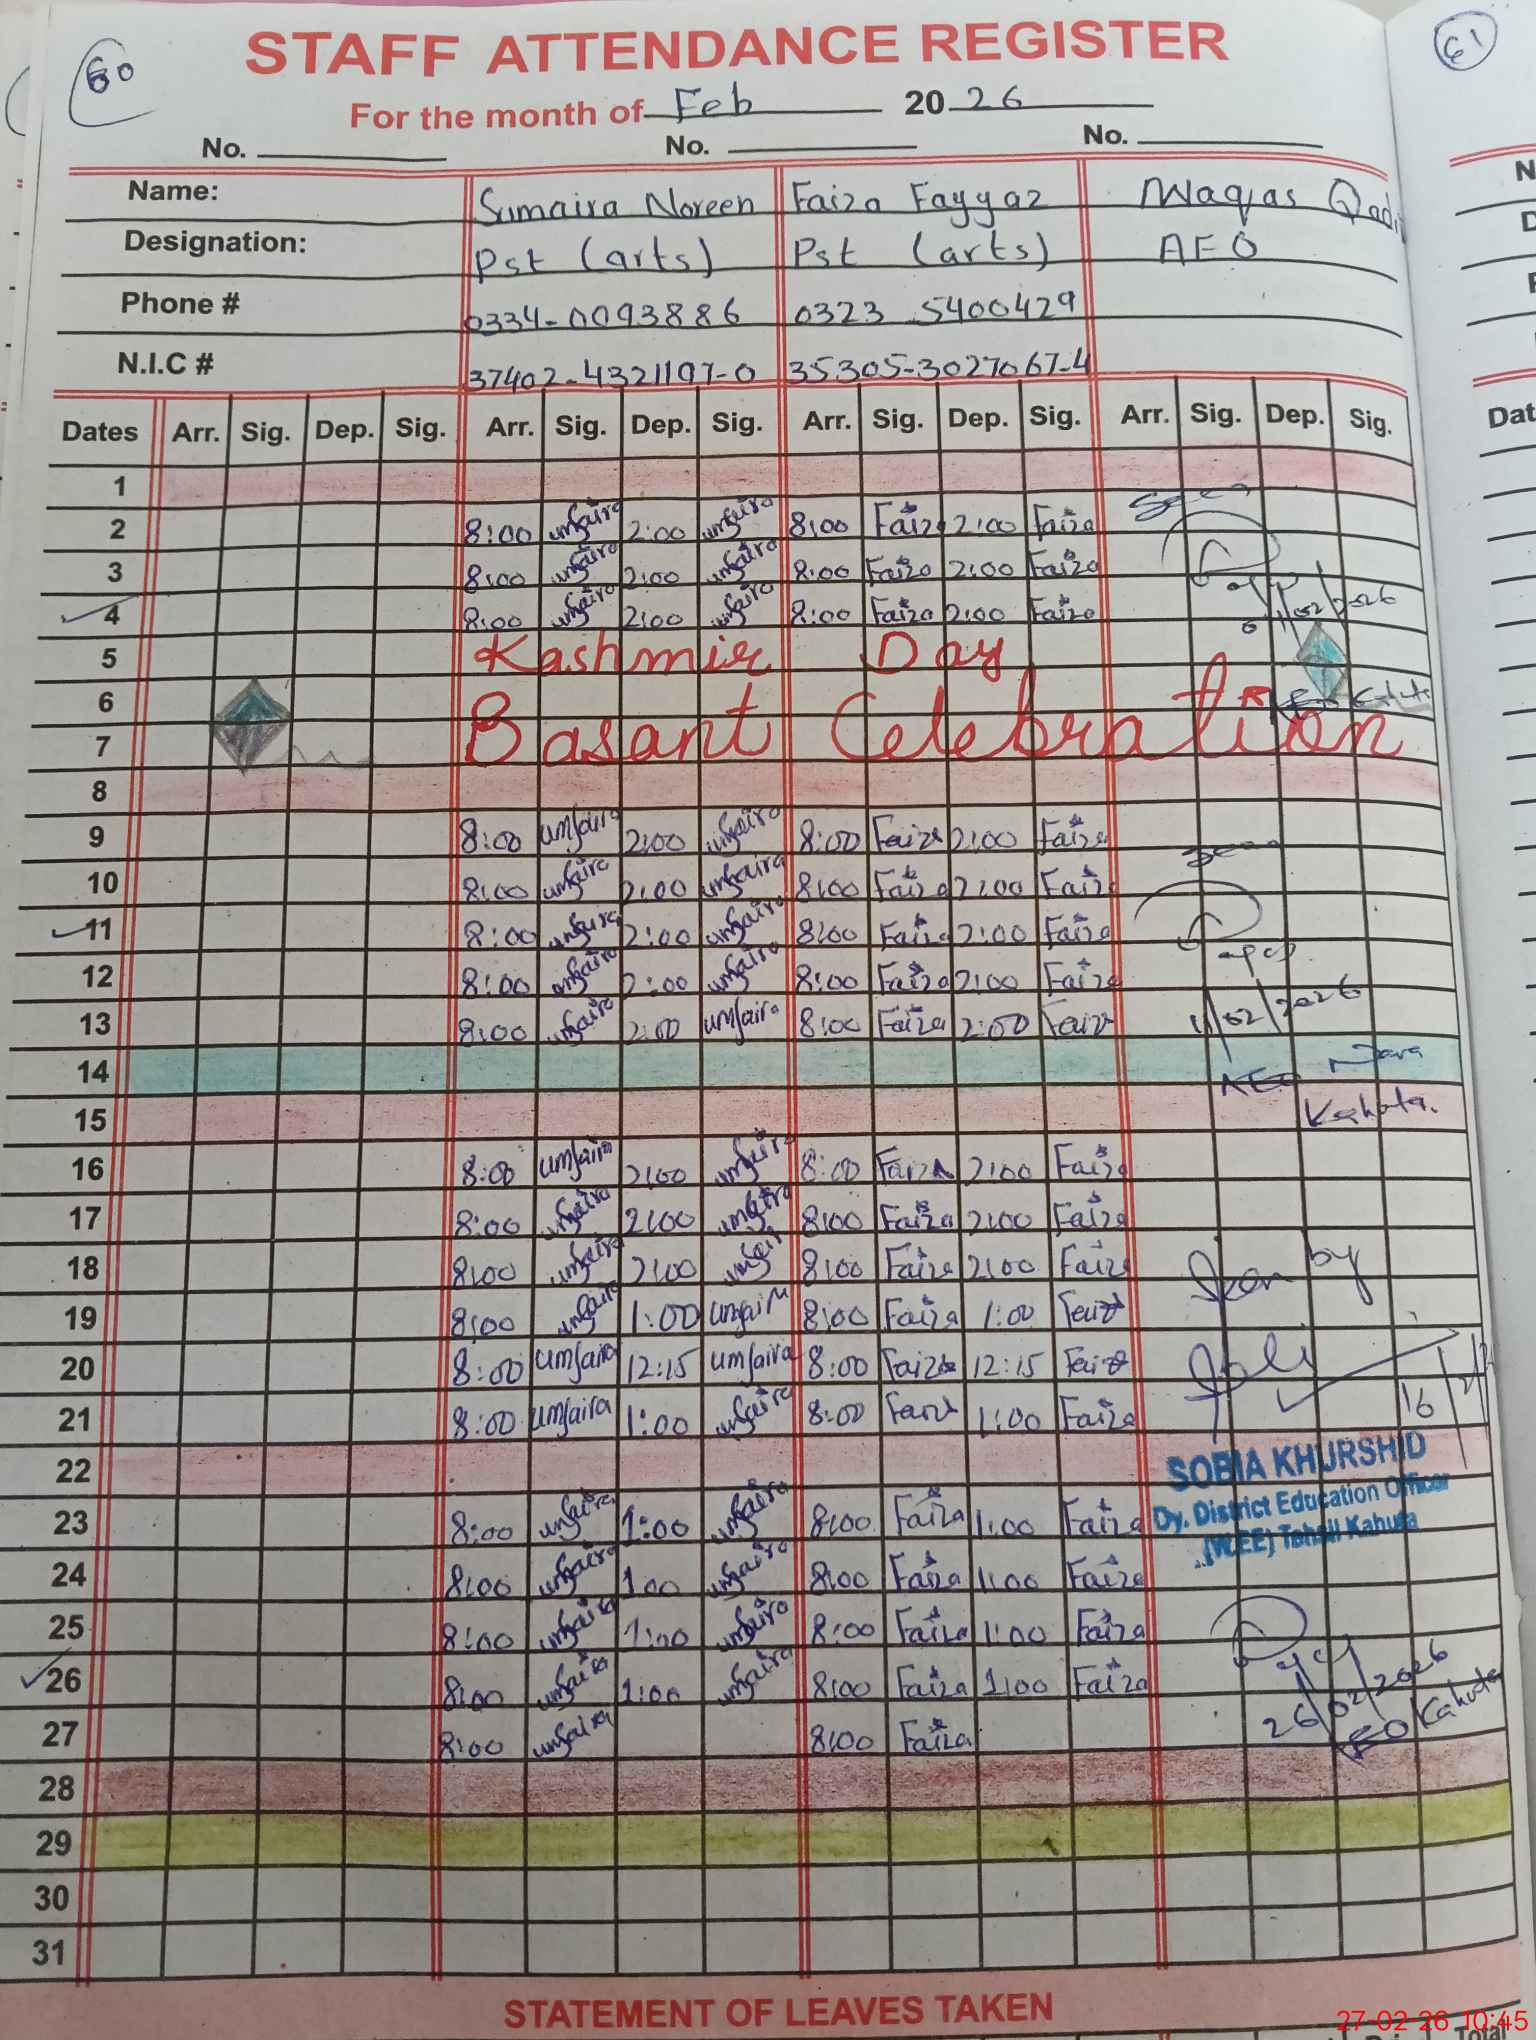 60
61
STAFF ATTENDANCE REGISTER
For the month of Feb 2026
No. No. No.
Name: Sumaira Noreen Faiza Fayyaz Waqas Qadir
Designation: Pst (arts) Pst (arts) AEO
Phone # 0334-0093886 0323 5400429
N.I.C # 37402-4321197-0 35305-3027067-4
Dates Arr. Sig. Dep. Sig. Arr. Sig. Dep. Sig. Arr. Sig. Dep. Sig. Arr. Sig. Dep. Sig.
Dat
1
2 8:00 2:00 8:00 Faiza 2:00 Faiza
3 8:00 2:00 8:00 Faiza 2:00 Faiza
4 8:00 2:00 8:00 Faiza 2:00 Faiza
5 Kashmir Day
6
7 Basant Celebration
8
9 8:00 2:00 8:00 Faiza 2:00 Faiza
10 8:00 2:00 8:00 Faiza 2:00 Faiza
11 8:00 2:00 8:00 Faiza 2:00 Faiza
12 8:00 2:00 8:00 Faiza 2:00 Faiza
13 8:00 2:00 8:00 Faiza 2:00 Faiza 11/02/2026
14 AEO Nara
15 Kahuta.
16 8:00 2:00 8:00 Faiza 2:00 Faiza
17 8:00 2:00 8:00 Faiza 2:00 Faiza
18 8:00 2:00 8:00 Faiza 2:00 Faiza Seen by
19 8:00 1:00 8:00 Faiza 1:00 Faiza
20 8:00 12:15 8:00 Faiza 12:15 Faiza
21 8:00 1:00 8:00 Faiza 1:00 Faiza
22 SOBIA KHURSHID
23 8:00 1:00 8:00 Faiza 1:00 Faiza Dy. District Education Officer
(W.EE) Tehsil Kahuta
24 8:00 1:00 8:00 Faiza 1:00 Faiza
25 8:00 1:00 8:00 Faiza 1:00 Faiza
26 8:00 1:00 8:00 Faiza 1:00 Faiza 26/02/2026
27 8:00 8:00 Faiza AEO Kahuta
28
29
30
31
STATEMENT OF LEAVES TAKEN
27-02-26 10:45
Total